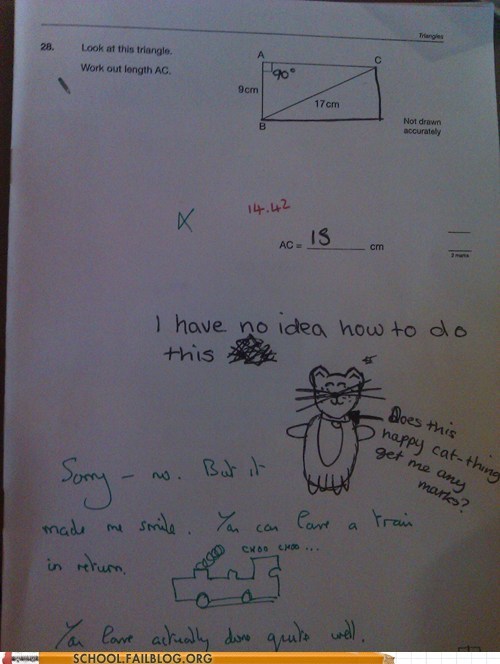 Triangles
28. Look at this triangle.
Work out length AC.
A
C
90°
9cm
17cm
B
Not drawn
accurately
14.42
AC = 15 cm
2 marks
I have no idea how to do
this
Does this
happy cat-thing
get me any
marks?
Sorry - no. But it
made me smile. You can have a train
in return.
CHOO CHOO...
You have actually done quite well.
SCHOOL.FAILBLOG.ORG